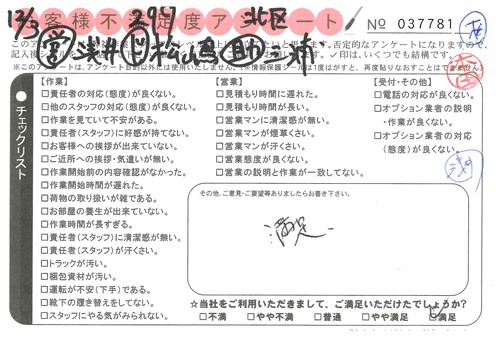 12/3 297 北区
お客様不満足度アンケート № 037781
【作業】
□責任者の対応(態度)が良くない。
□他のスタッフの対応(態度)が良くない。
□作業を見ていて不安がある。
□責任者(スタッフ)に好感が持てない。
□お客様への挨拶が出来ていない。
□ご近所への挨拶・気遣いが無い。
□作業開始前の内容確認がなかった。
□作業開始時間が遅れた。
□荷物の取り扱いが雑である。
□お部屋の養生が出来ていない。
□作業時間が長すぎる。
□責任者(スタッフ)に清潔感が無い。
□責任者(スタッフ)が汗くさい。
□トラックが汚い。
□梱包資材が汚い。
□運転が不安(下手)である。
□靴下の履き替えをしてない。
□スタッフにやる気がみられない。
【営業】
□見積もり時間に遅れた。
□見積もり時間が長い。
□営業マンに清潔感が無い。
□営業マンが煙草くさい。
□営業マンが汗くさい。
□営業態度が良くない。
□営業の説明と作業が一致してない。
【受付・その他】
□電話の対応が良くない。
□オプション業者の説明
・作業が良くない。
□オプション業者の対応
(態度)が良くない。
チェックリスト
その他、ご意見・ご要望等ありましたらお書き下さい。
満足
☆当社をご利用いただきまして、ご満足いただけたでしょうか?
□不満 □やや不満 □普通 □やや満足 □満足